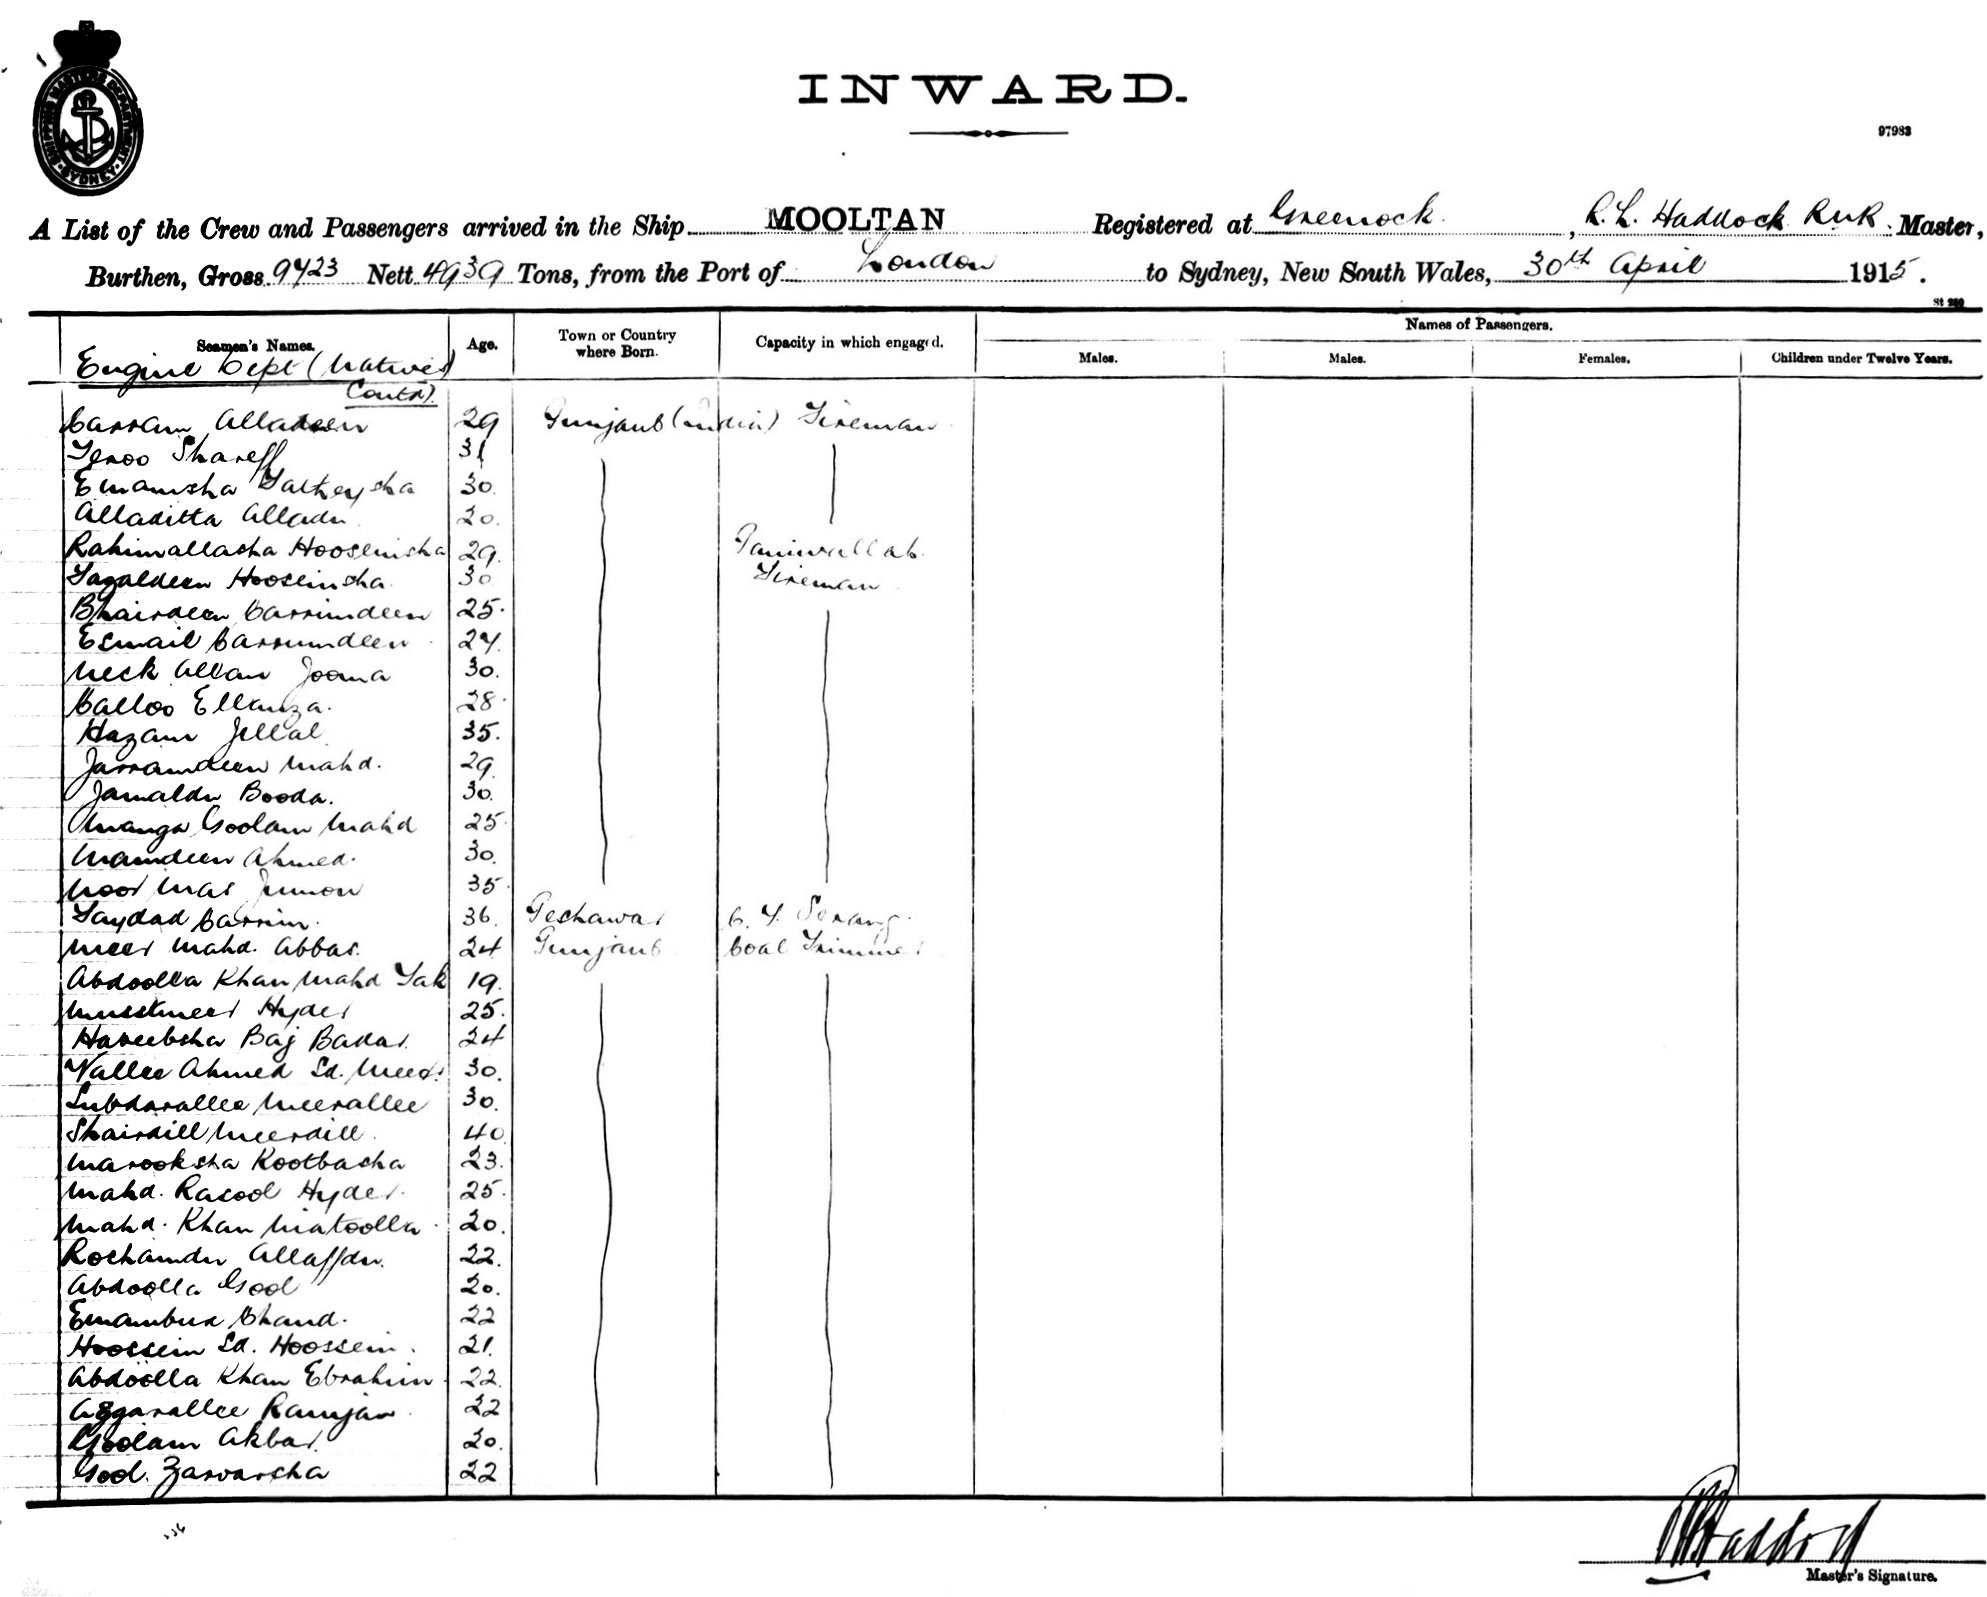 SHIPPING MASTERS DEPARTMENT SYDNEY
INWARD.
97983
A List of the Crew and Passengers arrived in the Ship MOOLTAN Registered at Greenock, R. L. Haddock RNR. Master,
Burthen, Gross 9723 Nett 4939 Tons, from the Port of London to Sydney, New South Wales, 30th April 1915.
Seamen's Names. Age. Town or Country where Born. Capacity in which engaged. Names of Passengers.
Males. Males. Females. Children under Twelve Years.
Engine Dept (Natives)
Contd).
Carram Alladeen 29 Punjaub (India) Fireman
Feroo Shareff 31
Emamsha Fatheysha 30.
Alladitta Alladn 20.
Rahimallasha Hooseinsha 29. Paniwallah.
Fazaldeen Hooseinsha. 30 Fireman
Bhairdeen Carrimdeen 25.
Esmail Carrumdeen 27.
Neck Allam Jooma 30.
Calloo Ellamza. 28.
Hazam Jellal 35.
Jarramdeen Mahd. 29.
Jamaldn Booda. 30.
Manga Goolam Mahd 25.
Mamdeen Ahmed. 30.
Noor Mas Jumon 35.
Saydad Carrim. 36. Peshawar E. F. Serang.
Meer Mahd. Abbas. 24 Punjaub. Coal Trimmer
Abdoolla Khan Mahd Jak 19.
Musstmeer Hyder 25.
Habeebsha Baj Badar. 24
Vallee Ahmed Sd. Meer. 30.
Subdarallee Meerallee 30.
Shairdill Meerdill. 40.
Marooksha Kootbasha 23.
Mahd. Rasool Hyder. 25.
Mahd. Khan Niatoolla. 20.
Roshamdn Allaffdn. 22.
Abdoolla Gool 20.
Emambux Chand. 22
Hoossein Sd. Hoossein. 21.
Abdoolla Khan Ebrahim. 22.
Asgarallee Ramjan. 22
Goolam Akbar. 20.
Gool. Zarvarsha 22
Master's Signature.